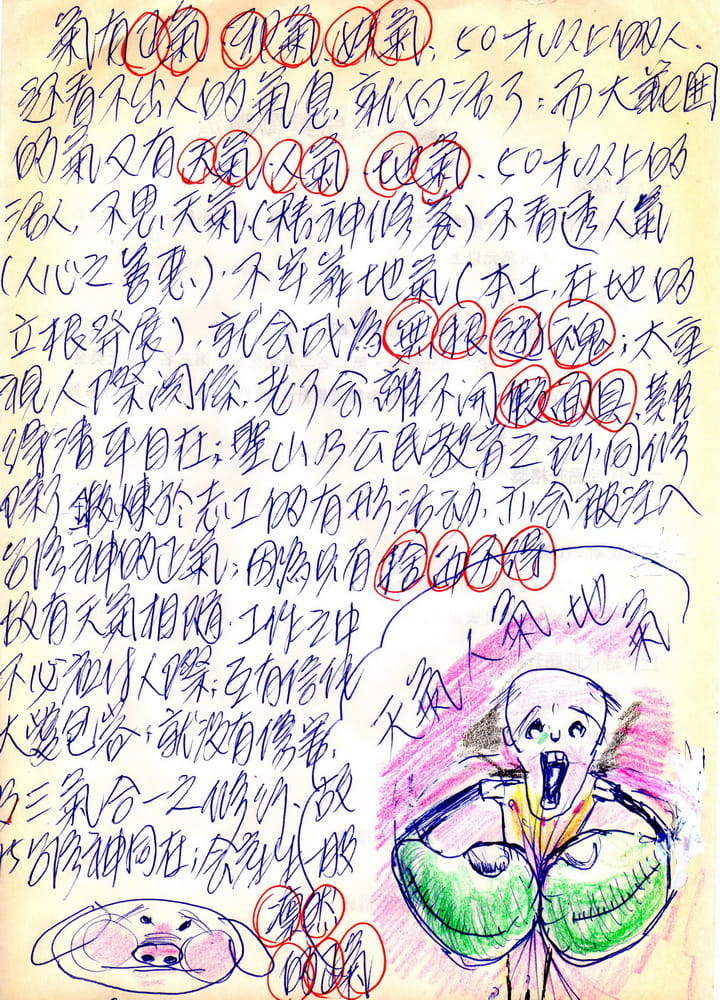 氣有正氣、邪氣、妖氣；50才以上的人、
还看不出人的氣息，就白活了；而大範囲
的氣又有天氣、人氣、地氣、50才以上的
活人，不思天氣（精神修養）不看透人氣
（人心之善惡），不牢靠地氣（本土，在地的
立根發展），就会成為無根遊魂；太重
視人際関係，老了会離不開假面具，
清平自在；聖山乃公民教育之列，同修
除了鍛煉於志工的有形活动，亦会被注入
的正氣；因為只有捨而不得
故有天氣相隨，工作之中
不必人際；互有信任
大愛包容，就沒有傷害，
三氣合一之修行、故
同在；会產生一股
凛然
的正氣
天氣人氣地氣